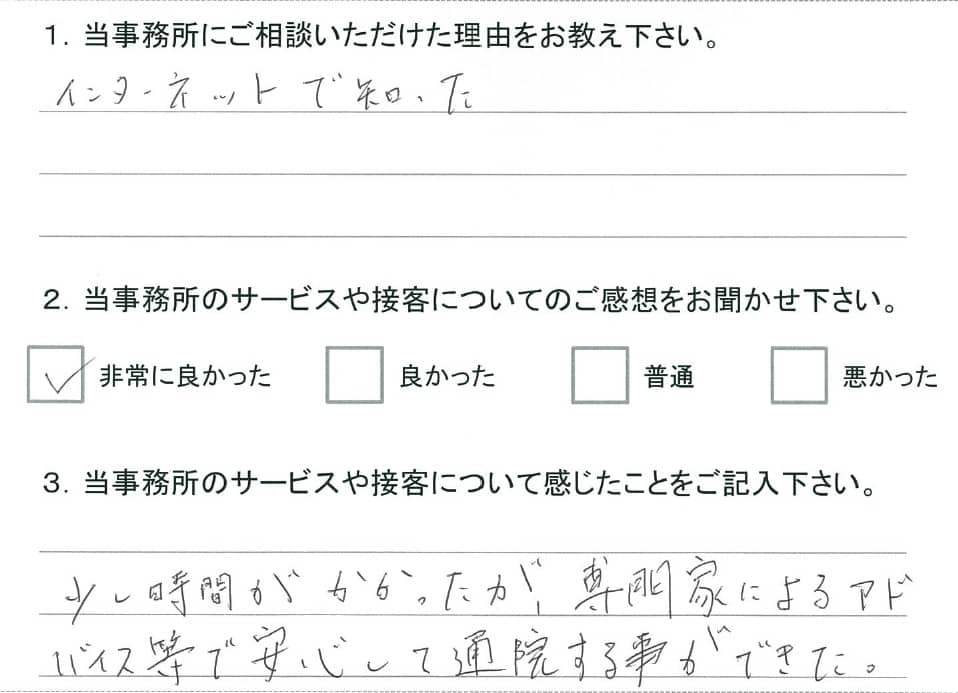 1. 当事務所にご相談いただけた理由をお教え下さい。
インターネットで知った
2. 当事務所のサービスや接客についてのご感想をお聞かせ下さい。
非常に良かった 良かった 普通 悪かった
3. 当事務所のサービスや接客について感じたことをご記入下さい。
少し時間がかかったが、専門家によるアド
バイス等で安心して通院する事ができた。